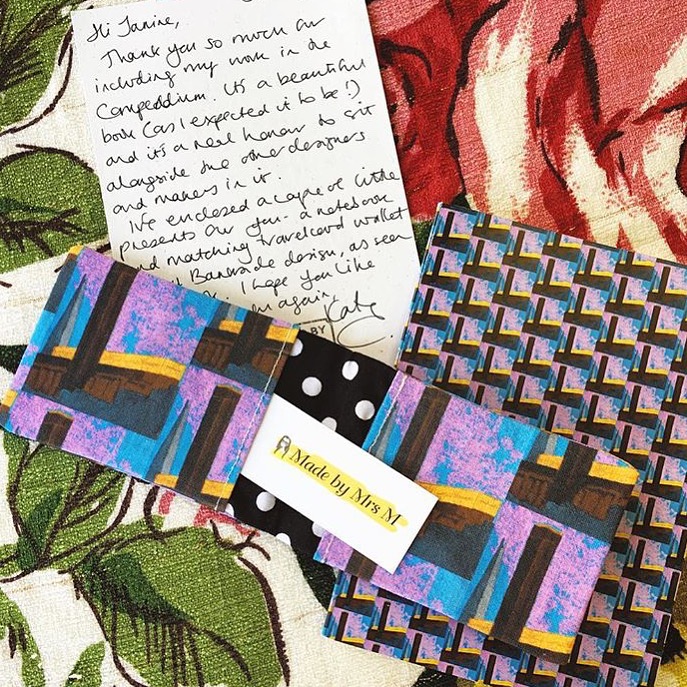 Hi Janine,
Thank you so much for
including my work in the
Compendium. It's a beautiful
book (as I expected it to be!)
and it's a real honour to sit
alongside the other designers
and makers in it.
I've enclosed a couple of little
presents for you - a notebook
and matching travelcard wallet
Bankside design, as seen
I hope you like
again,
Katy
BY
Made by Mrs M